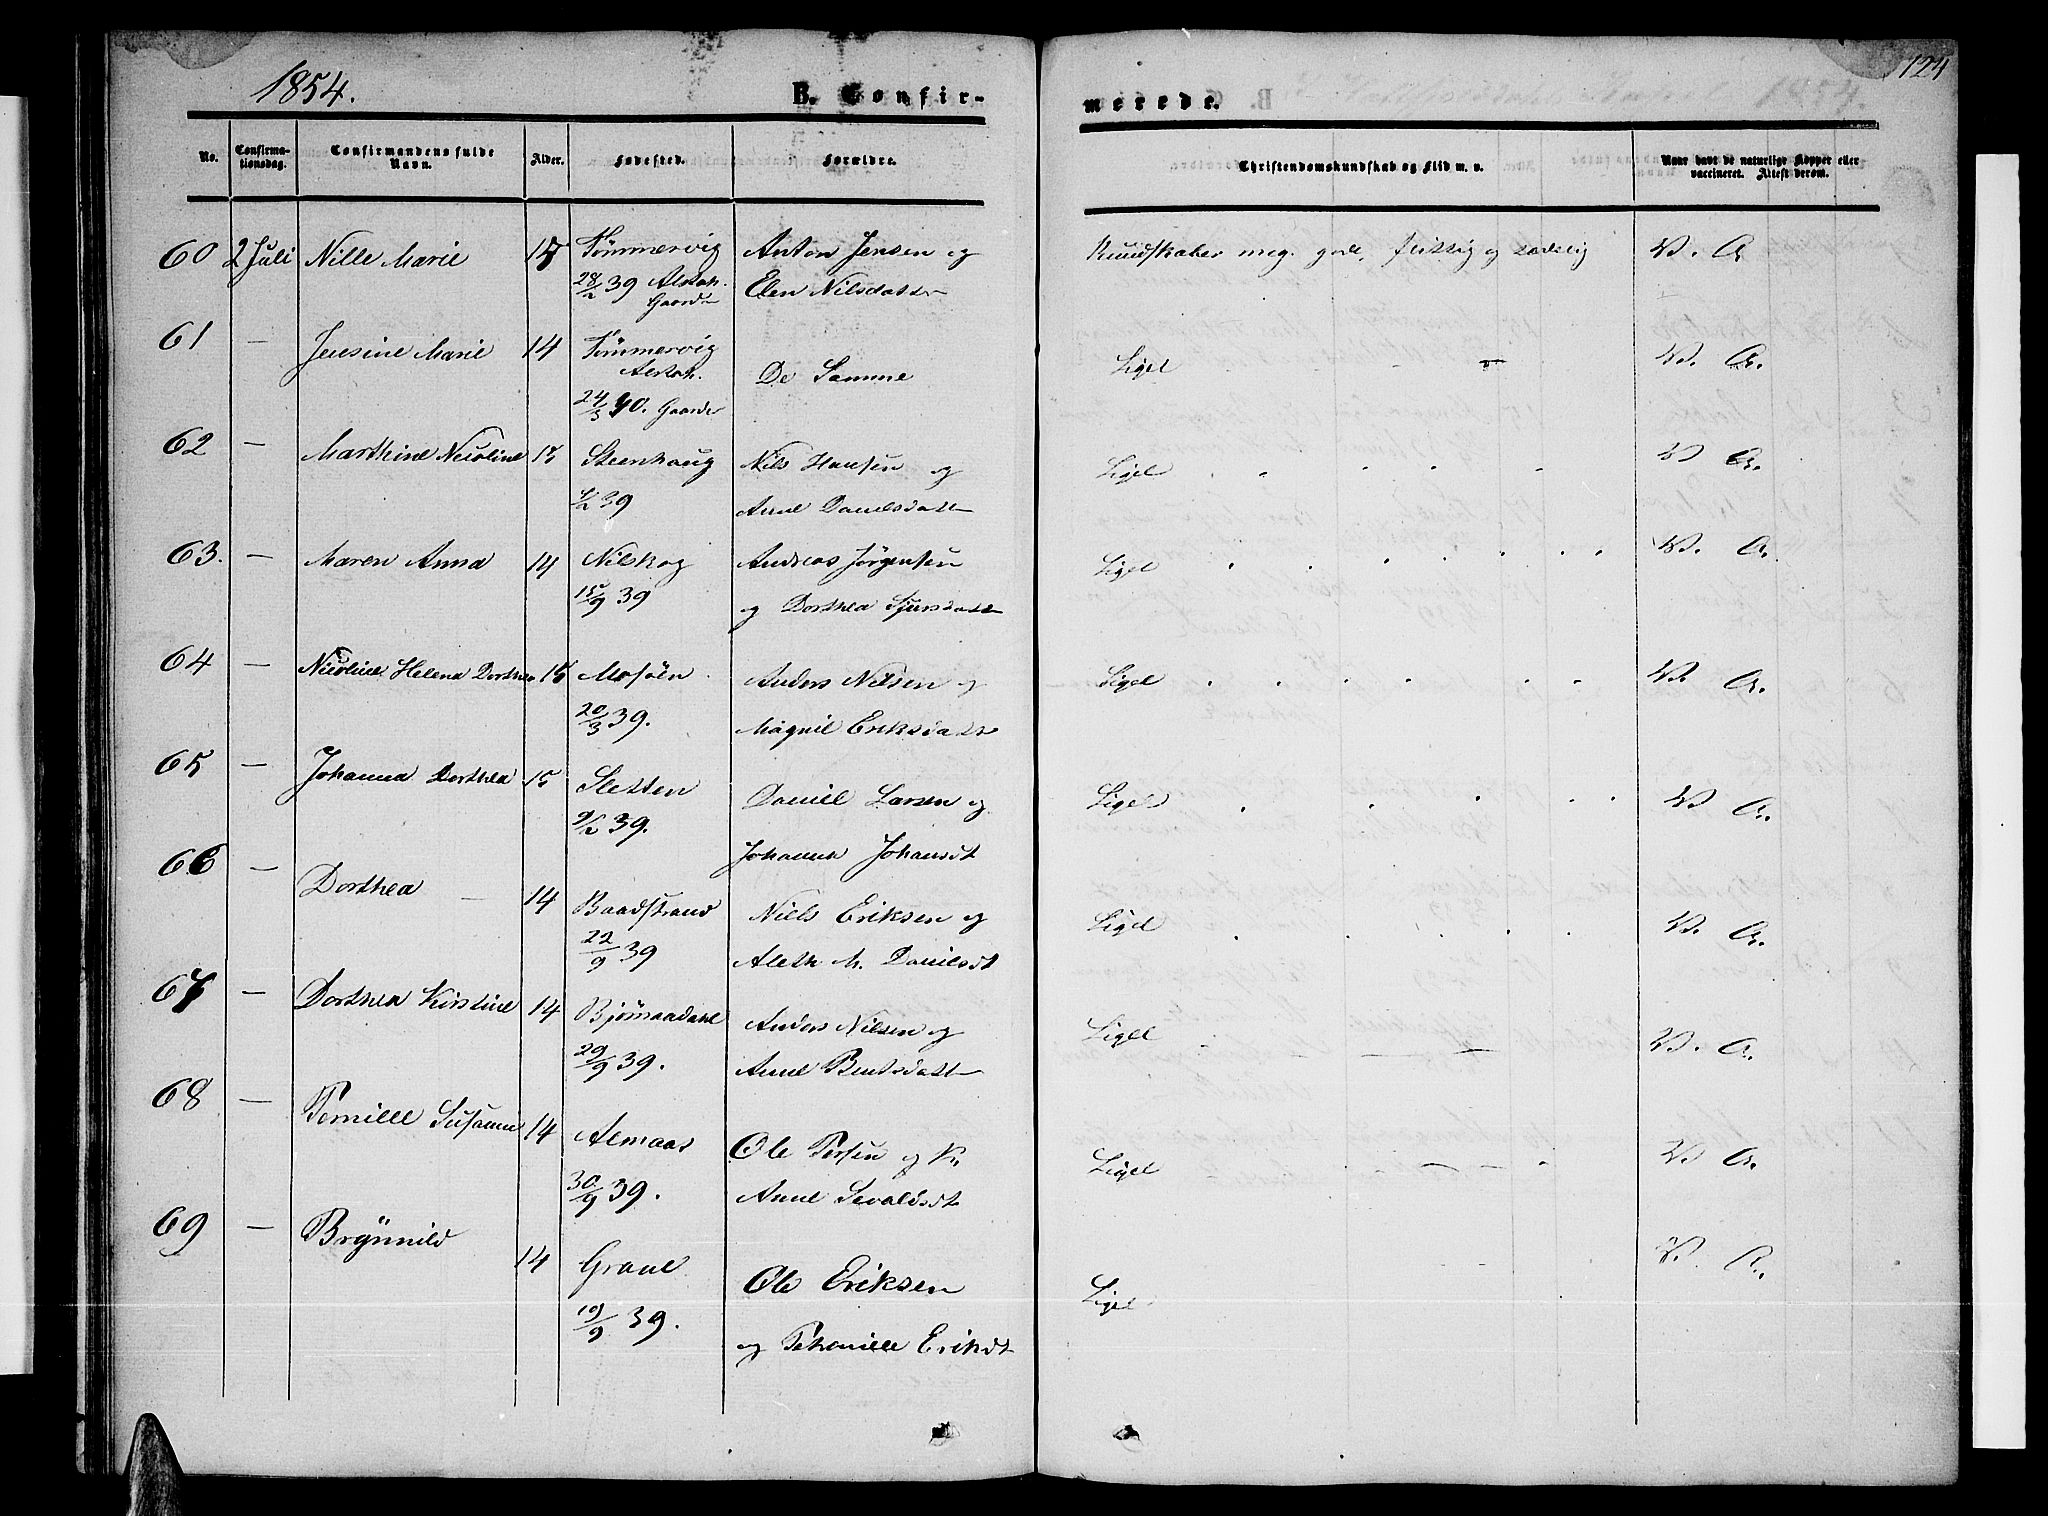 1854.
B. Confir-
merede.
124
No.
Confirma-
tionsdag.
Confirmandens fulde
Navn.
Alder.
Fødested.
Forældre.
Christendomskundskab og Flid m. v.
Naar havt de naturlige Kopper eller
vaccineret. Attest derom.
60 2 Juli Nille Marie 15 Tømmervig Anton Jensen og
28/2 39 Alstah. Elen Nilsdatter
Gaarder
Kundskaber meg. gode, flittig og sædelig V. A.
61 — Jensine Marie 14 Tømmervig
Alstah. De Samme
24/3 40. Gaarder
Ligel V. A.
62 — Marthine Nicoline 15 Steenhaug Nils Hansen og
39 Anne Danielsdatt
Ligel V A.
63. — Maren Anna 14 Nilskog Andreas Jørgensen
15/9 39 og Dorthea Sjursdatt
Ligel V. A.
64 — Nicoline Helena Dorthea 15 Mosøen Anders Nilsen og
20/3 39. Magnil Eriksdatt
Ligel V. A.
65 — Johanna Dorthea 15 Sletten Daniel Larsen og
9/2 39. Johanna Johansdt
Ligel V A.
66 — Dorthea 14 Baadstrand Niels Eriksen og
22/9 39 Aleth M. Danielsdt
Ligel V. A.
67 — Dorthea Kirstine 14 Bjørnaadahl Anders Nilsen og
29/9 39. Anne Bentsdatt
Ligel V. A.
68 — Pernille Susanne 14 Almaas Ole Persen og K.
30/9 39. Anne Sivaldsdt
Ligel V. A.
69 — Brynnild 14 Grane Ole Eriksen
19/9 39. og Pehanille Eriksdt
Ligel V. A.